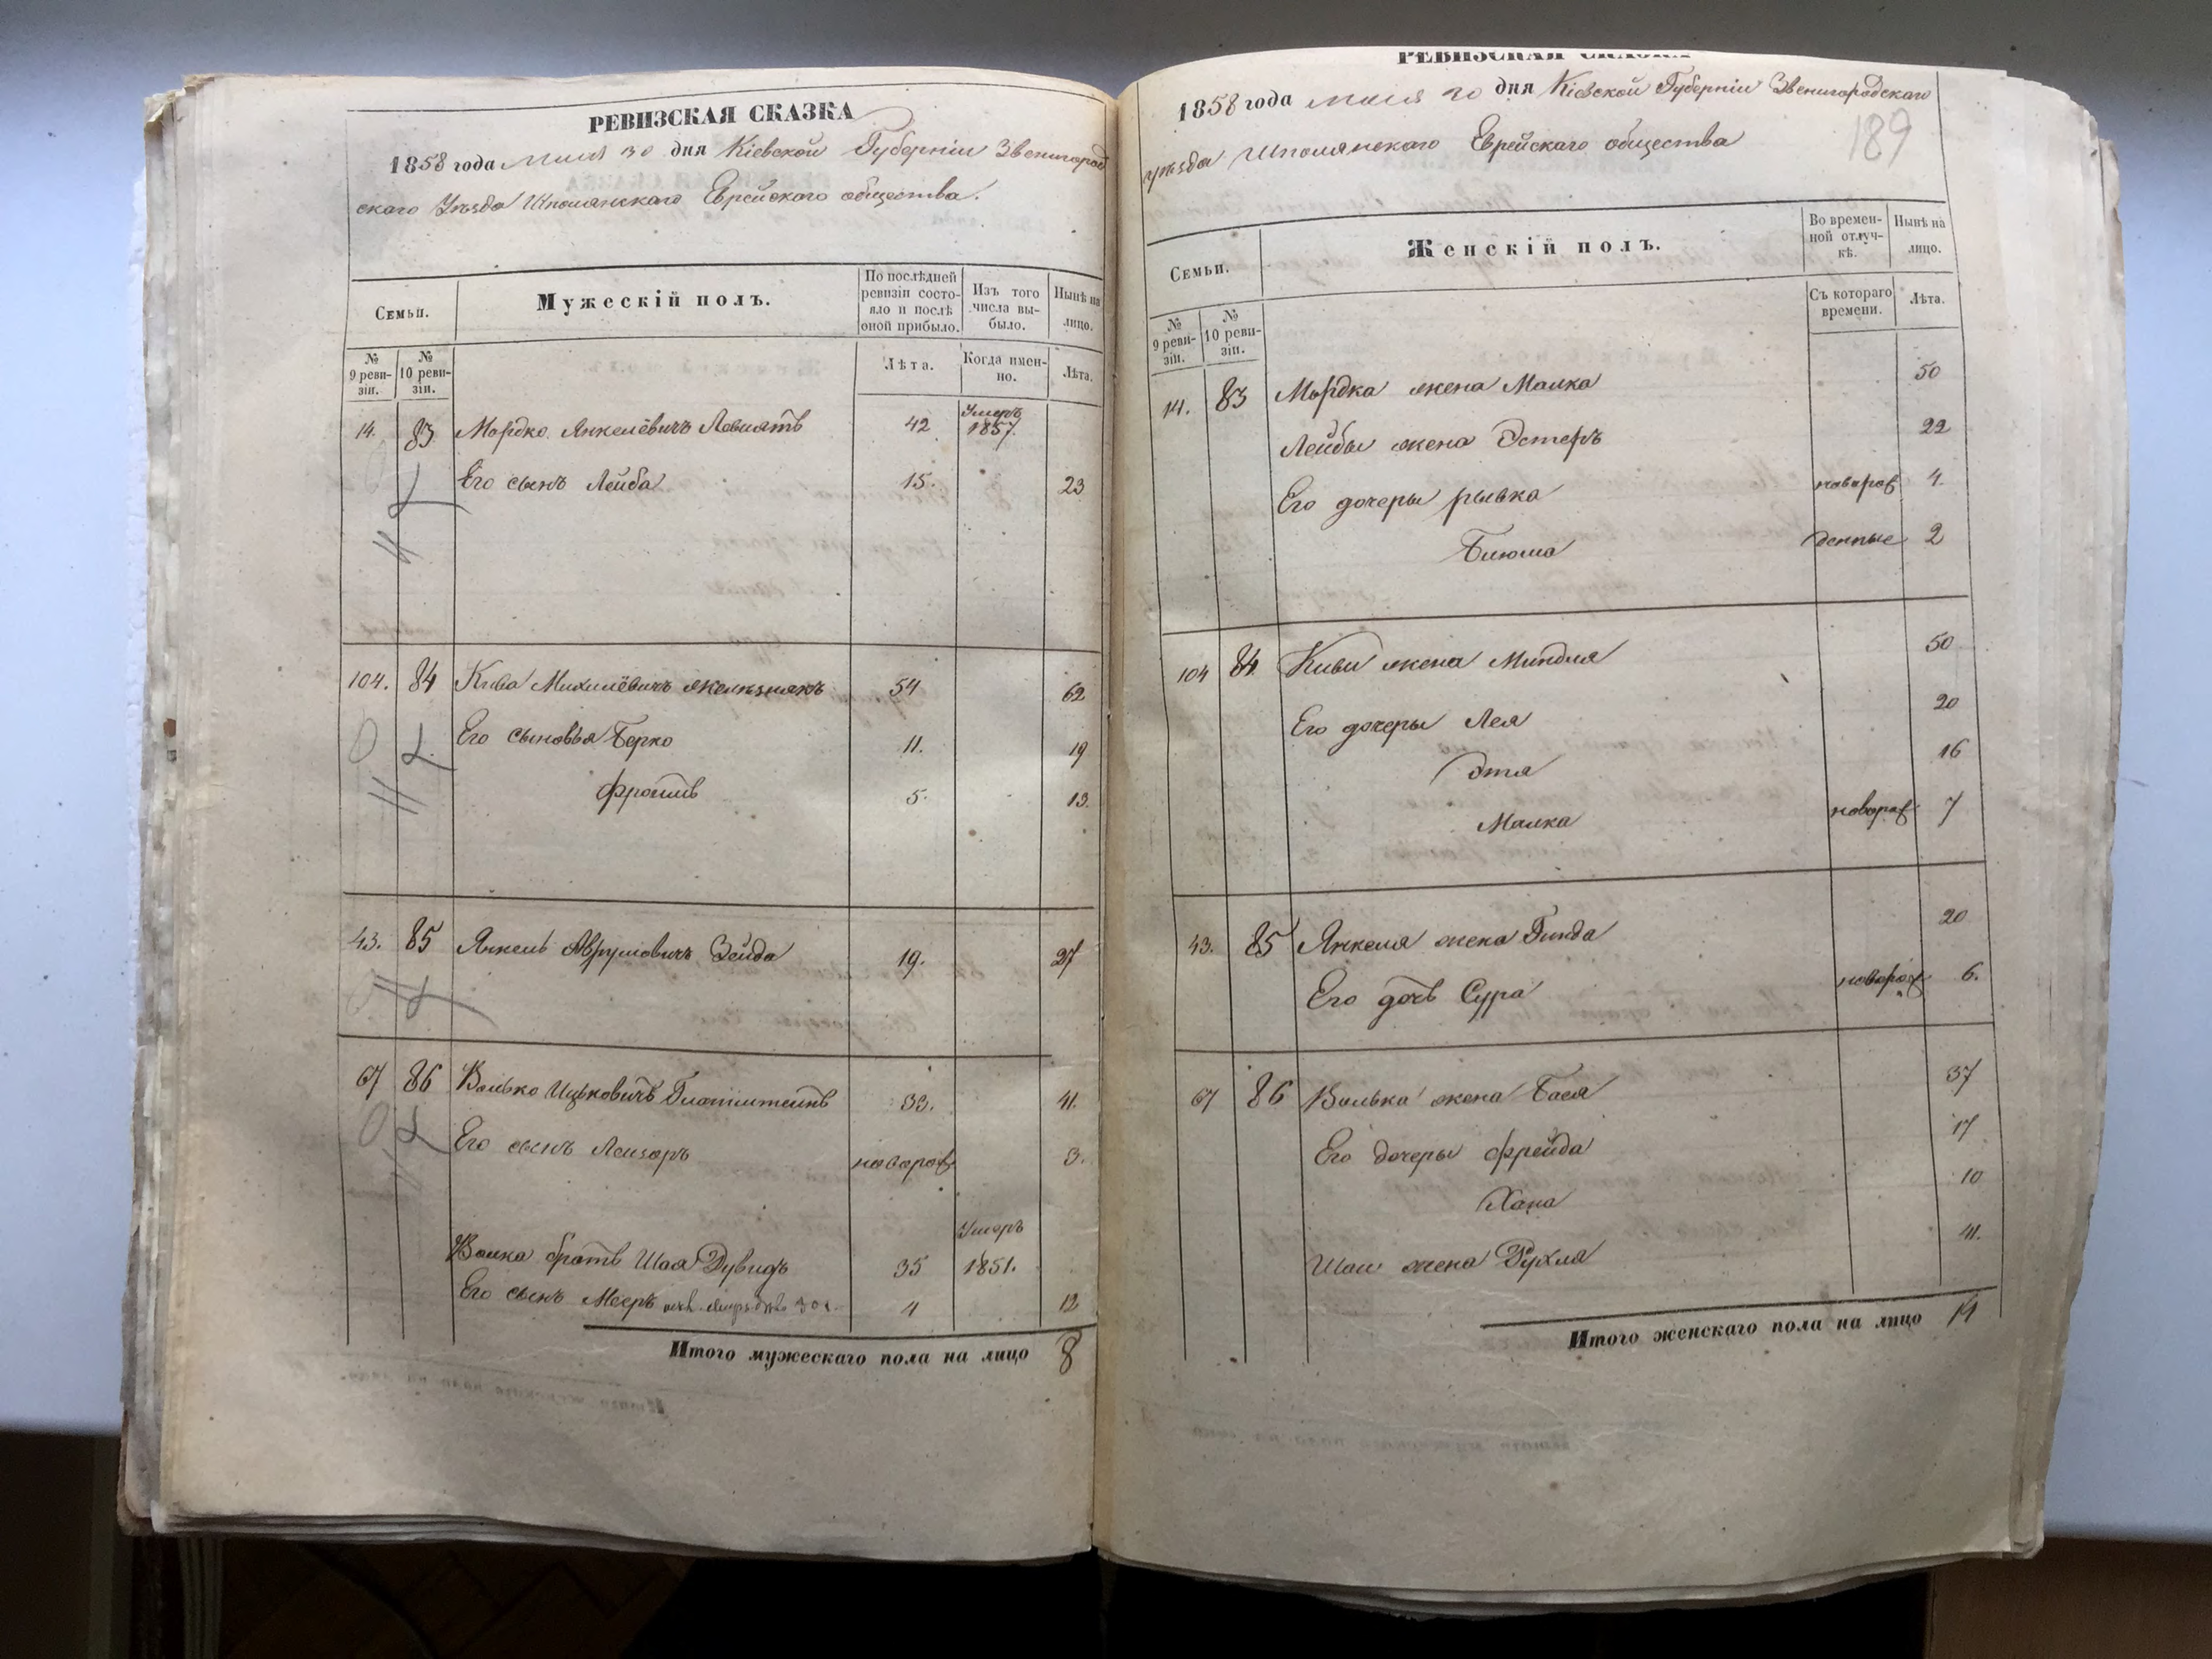 РЕВИЗСКАЯ СКАЗКА
1858 года Мая 30 дня Кіевской Губерніи Звенигород
скаго Уѣзда Шполянскаго Еврейскаго общества.
Семьи.
Мужескій полъ.
По послѣдней ревизіи состояло и послѣ оной прибыло.
Изъ того числа выбыло.
Нынѣ на лицо.
№ 9 ревизіи.
№ 10 ревизіи.
Лѣта.
Когда именно.
Лѣта.
14. 83 Мордко Янкелёвичъ 42 Умеръ 1857.
Его сынъ Лейба 15. 23
104. 84 Кива Михилёвичъ 54 62
Его сыновья Берко 11. 19
Фроимъ 5. 13.
43. 85 Янкель Аврумовичъ Зейда 19. 27
67 86 Волько Ицьковичъ 33. 41.
Его сынъ Лейзоръ новорож 3.
Волка братъ Шая Дувидъ 35 Умеръ 1851.
Его сынъ Мееръ 4 12
Итого мужескаго пола на лицо 8
РЕВИЗСКАЯ СКАЗКА
1858 года Мая 30 дня Кіевской Губерніи Звенигородскаго
189
уѣзда Шполянскаго Еврейскаго общества
Семьи.
Женскій полъ.
Во временной отлучкѣ.
Нынѣ на лицо.
№ 9 ревизіи.
№ 10 ревизіи.
Съ котораго времени.
Лѣта.
14. 83 Мордка жена Малка 50
Лейбы жена Эстеръ 22
Его дочеры рывка новорож 4.
Блюма денные 2
104 84 Кивы жена Миндля 50
Его дочеры Лея 20
Этя 16
Малка новорож 7
43. 85 Янкеля жена Гинда 20
Его дочь Сура новорож 6.
67 86 Волька жена Бася 37
Его дочеры Фрейда 17
Хана 10
Шаи жена Рухля 41.
Итого женскаго пола на лицо 14